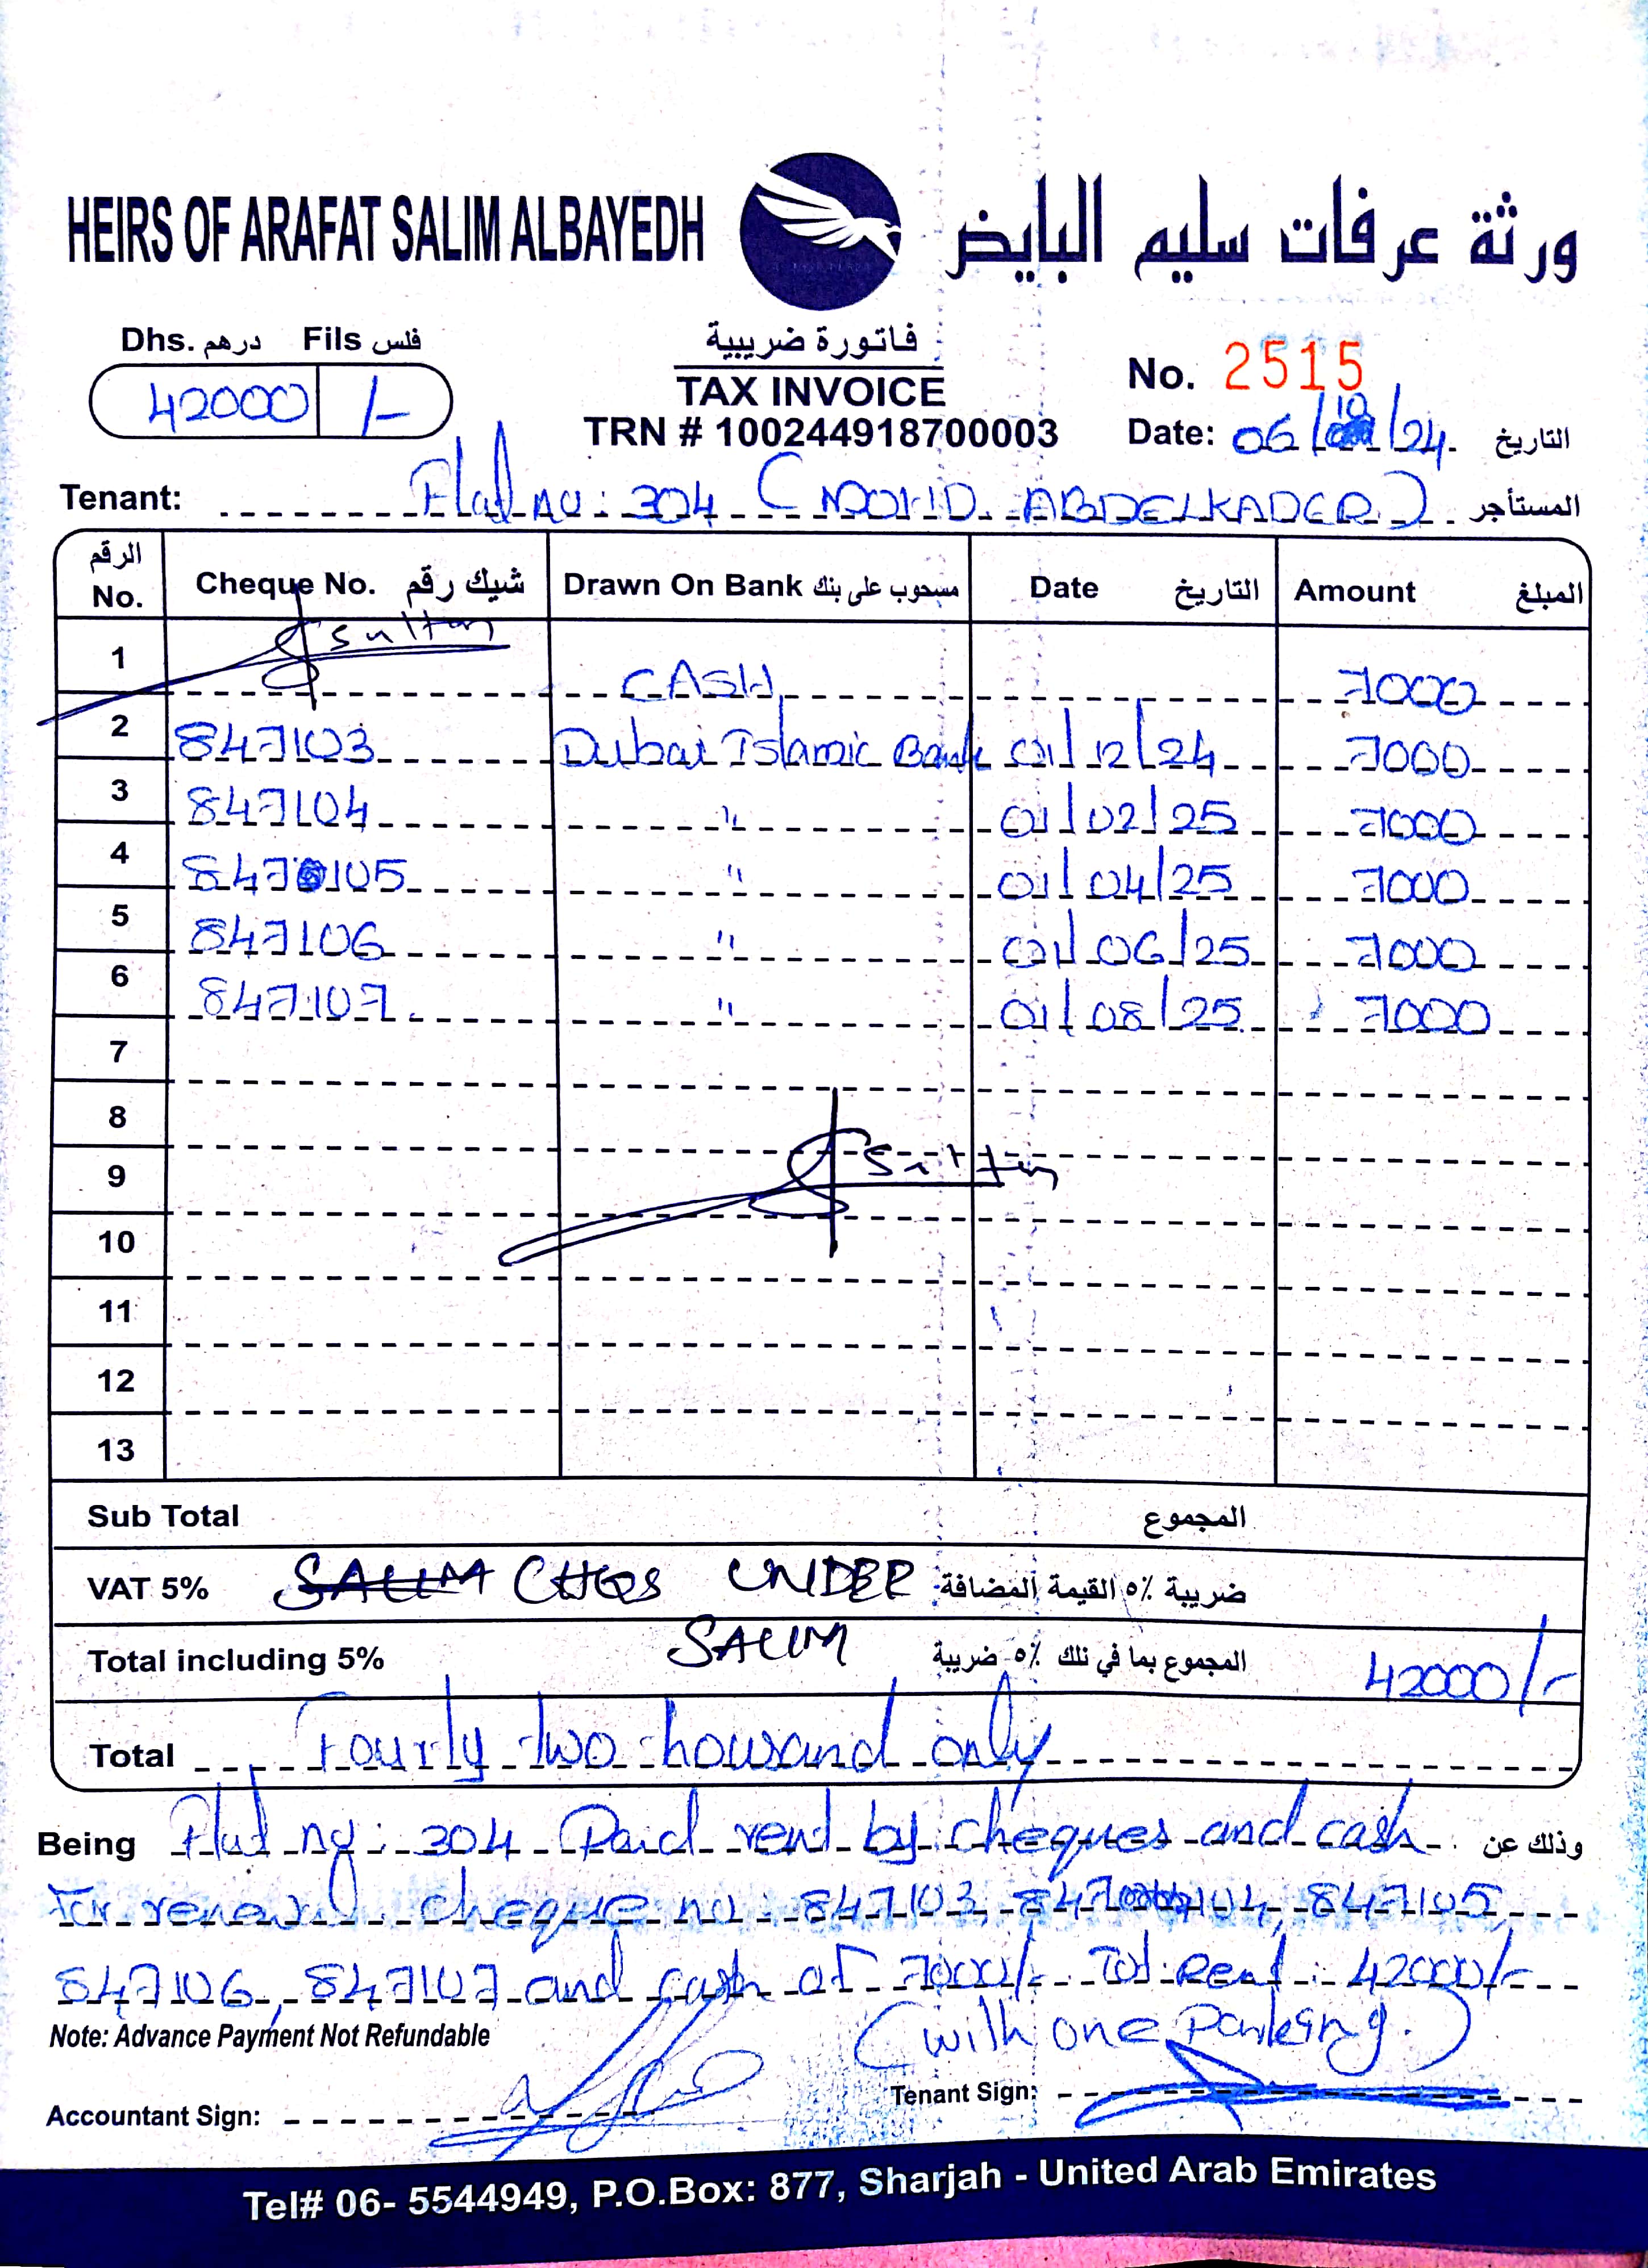 HEIRS OF ARAFAT SALIM ALBAYEDH ورثة عرفات سليم البايض
Dhs. درهم Fils فلس
42000 /-
فاتورة ضريبية
TAX INVOICE
TRN # 100244918700003
No. 2515
Date: 06/10/24 التاريخ
Tenant: Flat no: 304 ( ABDELKADER) المستأجر
الرقم No. Cheque No. شيك رقم Drawn On Bank مسحوب على بنك Date التاريخ Amount المبلغ
1 sultan CASH 7000
2 847103 Dubai Islamic Bank 01/12/24 7000
3 847104 " 01/02/25 7000
4 847105 " 01/04/25 7000
5 847106 " 01/06/25 7000
6 847107 " 01/08/25 7000
7
8
9 sultan
10
11
12
13
Sub Total المجموع
VAT 5% SALIM CHQS UNDER ضريبة ٥٪ القيمة المضافة
Total including 5% SALIM المجموع بما في ذلك ٥٪ ضريبة 42000/-
Total Fourty two thousand only
Being Flat no: 304 Paid rent by cheques and cash وذلك عن
For renewal cheque no: 847103, 847104, 847105,
847106, 847107 and cash of 7000/- Tot Rent: 42000/-
Note: Advance Payment Not Refundable (with one Parking.)
Accountant Sign: Tenant Sign:
Tel# 06- 5544949, P.O.Box: 877, Sharjah - United Arab Emirates